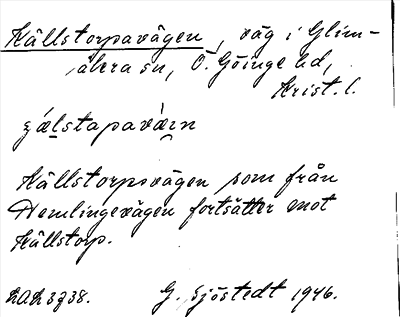 Källstorpavägen, väg i Glim-
åkra sn, Ö. Göinge hd,
Krist. l.
Källstorpsvägen som från
Hemlingevägen fortsätter mot
Källstorp.
G. Sjöstedt 1946.